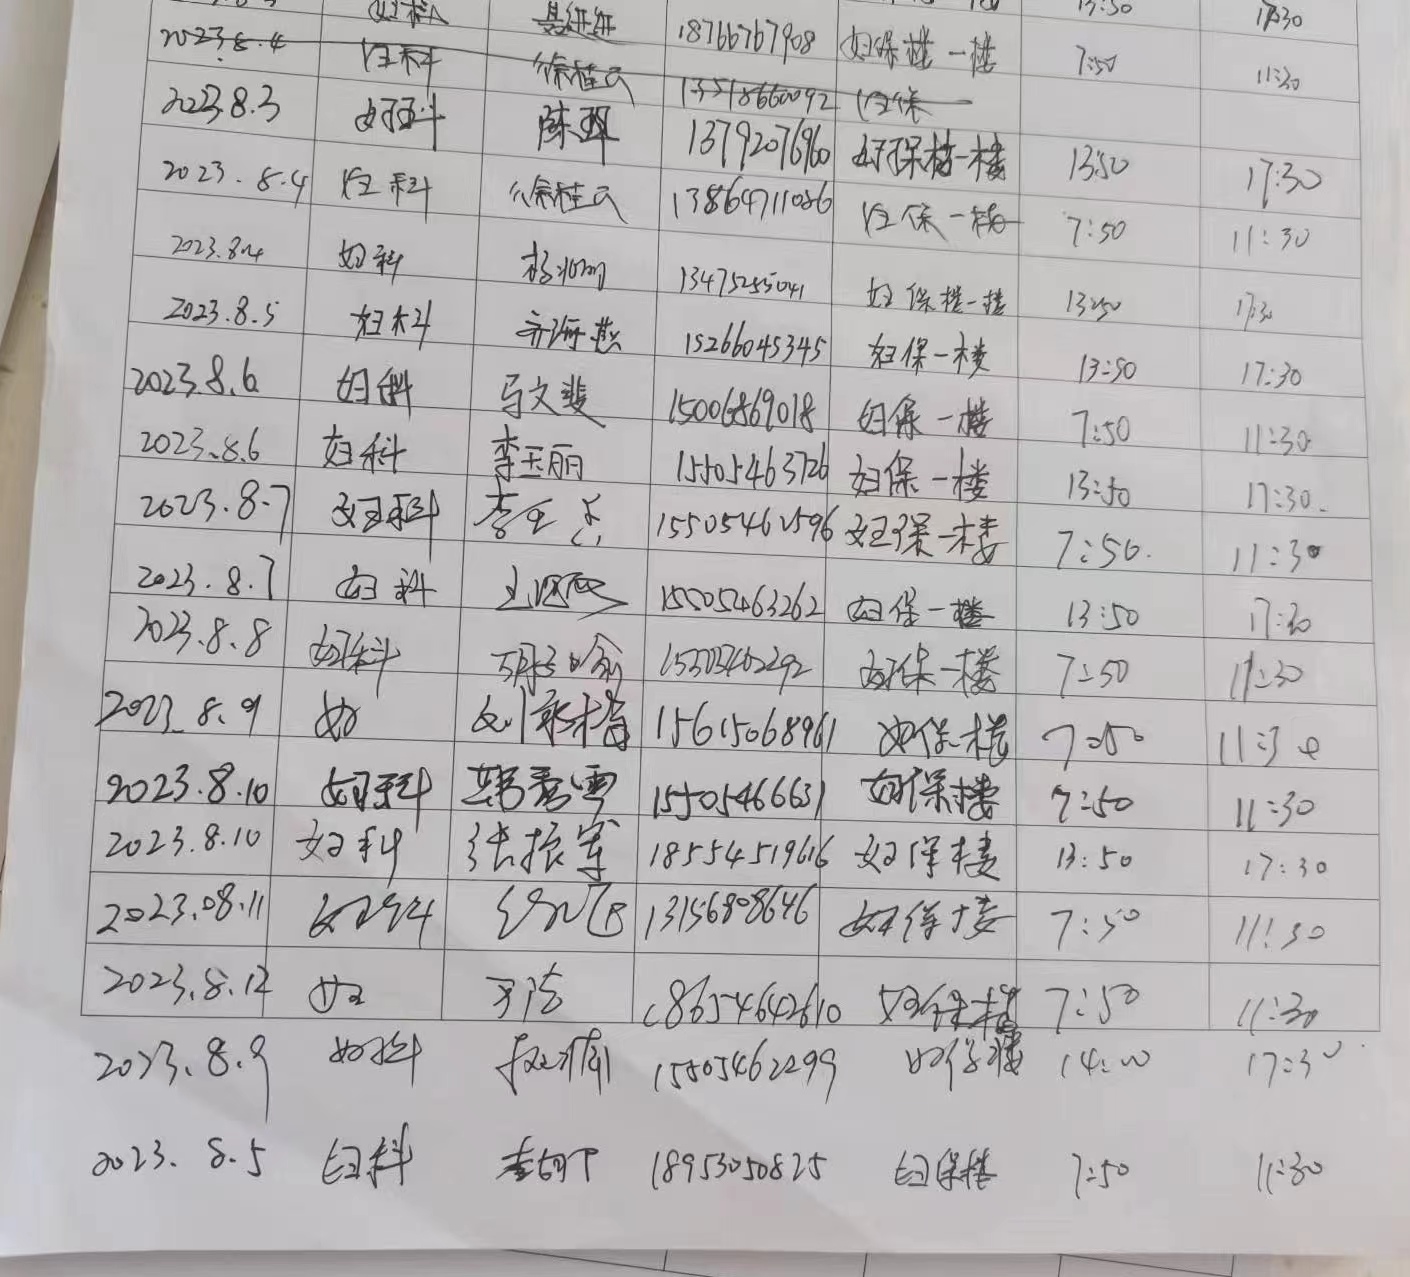 妇科 18766767908 妇保楼一楼 13:50 17:30
2023.8.4 妇科 徐桂云 13518660092 妇保一 7:50 11:30
2023.8.3 妇科 陈翠 13792076960 妇保楼一楼 13:50 17:30
2023.8.4 妇科 徐桂云 13864711086 妇保一楼 7:50 11:30
2023.8.4 妇科 13475255041 妇保楼一楼 13:50 17:30
2023.8.5 妇科 齐海燕 15266045345 妇保一楼 13:50 17:30
2023.8.6 妇科 马文斐 15006869018 妇保一楼 7:50 11:30
2023.8.6 妇科 李玉丽 15505463726 妇保一楼 13:50 17:30.
2023.8.7 妇科 15505462596 妇保一楼 7:50. 11:30
2023.8.7 妇科 15505463262 妇保一楼 13:50 17:30
2023.8.8 妇科 妇保一楼 7:50 11:30
2023.8.9 妇 15615068961 妇保楼 7:50 11:30
2023.8.10 妇科 韩秀雪 15505466631 妇保楼 7:50 11:30
2023.8.10 妇科 张振军 18554519616 妇保楼 13:50 17:30
2023.08.11 妇科 13156808646 妇保楼 7:50 11:30
2023.8.12 妇 18654642610 妇保楼 7:50 11:30
2023.8.9 妇科 15505462299 妇保楼 14:00 17:30
2023.8.5 妇科 18953050825 妇保楼 7:50 11:30